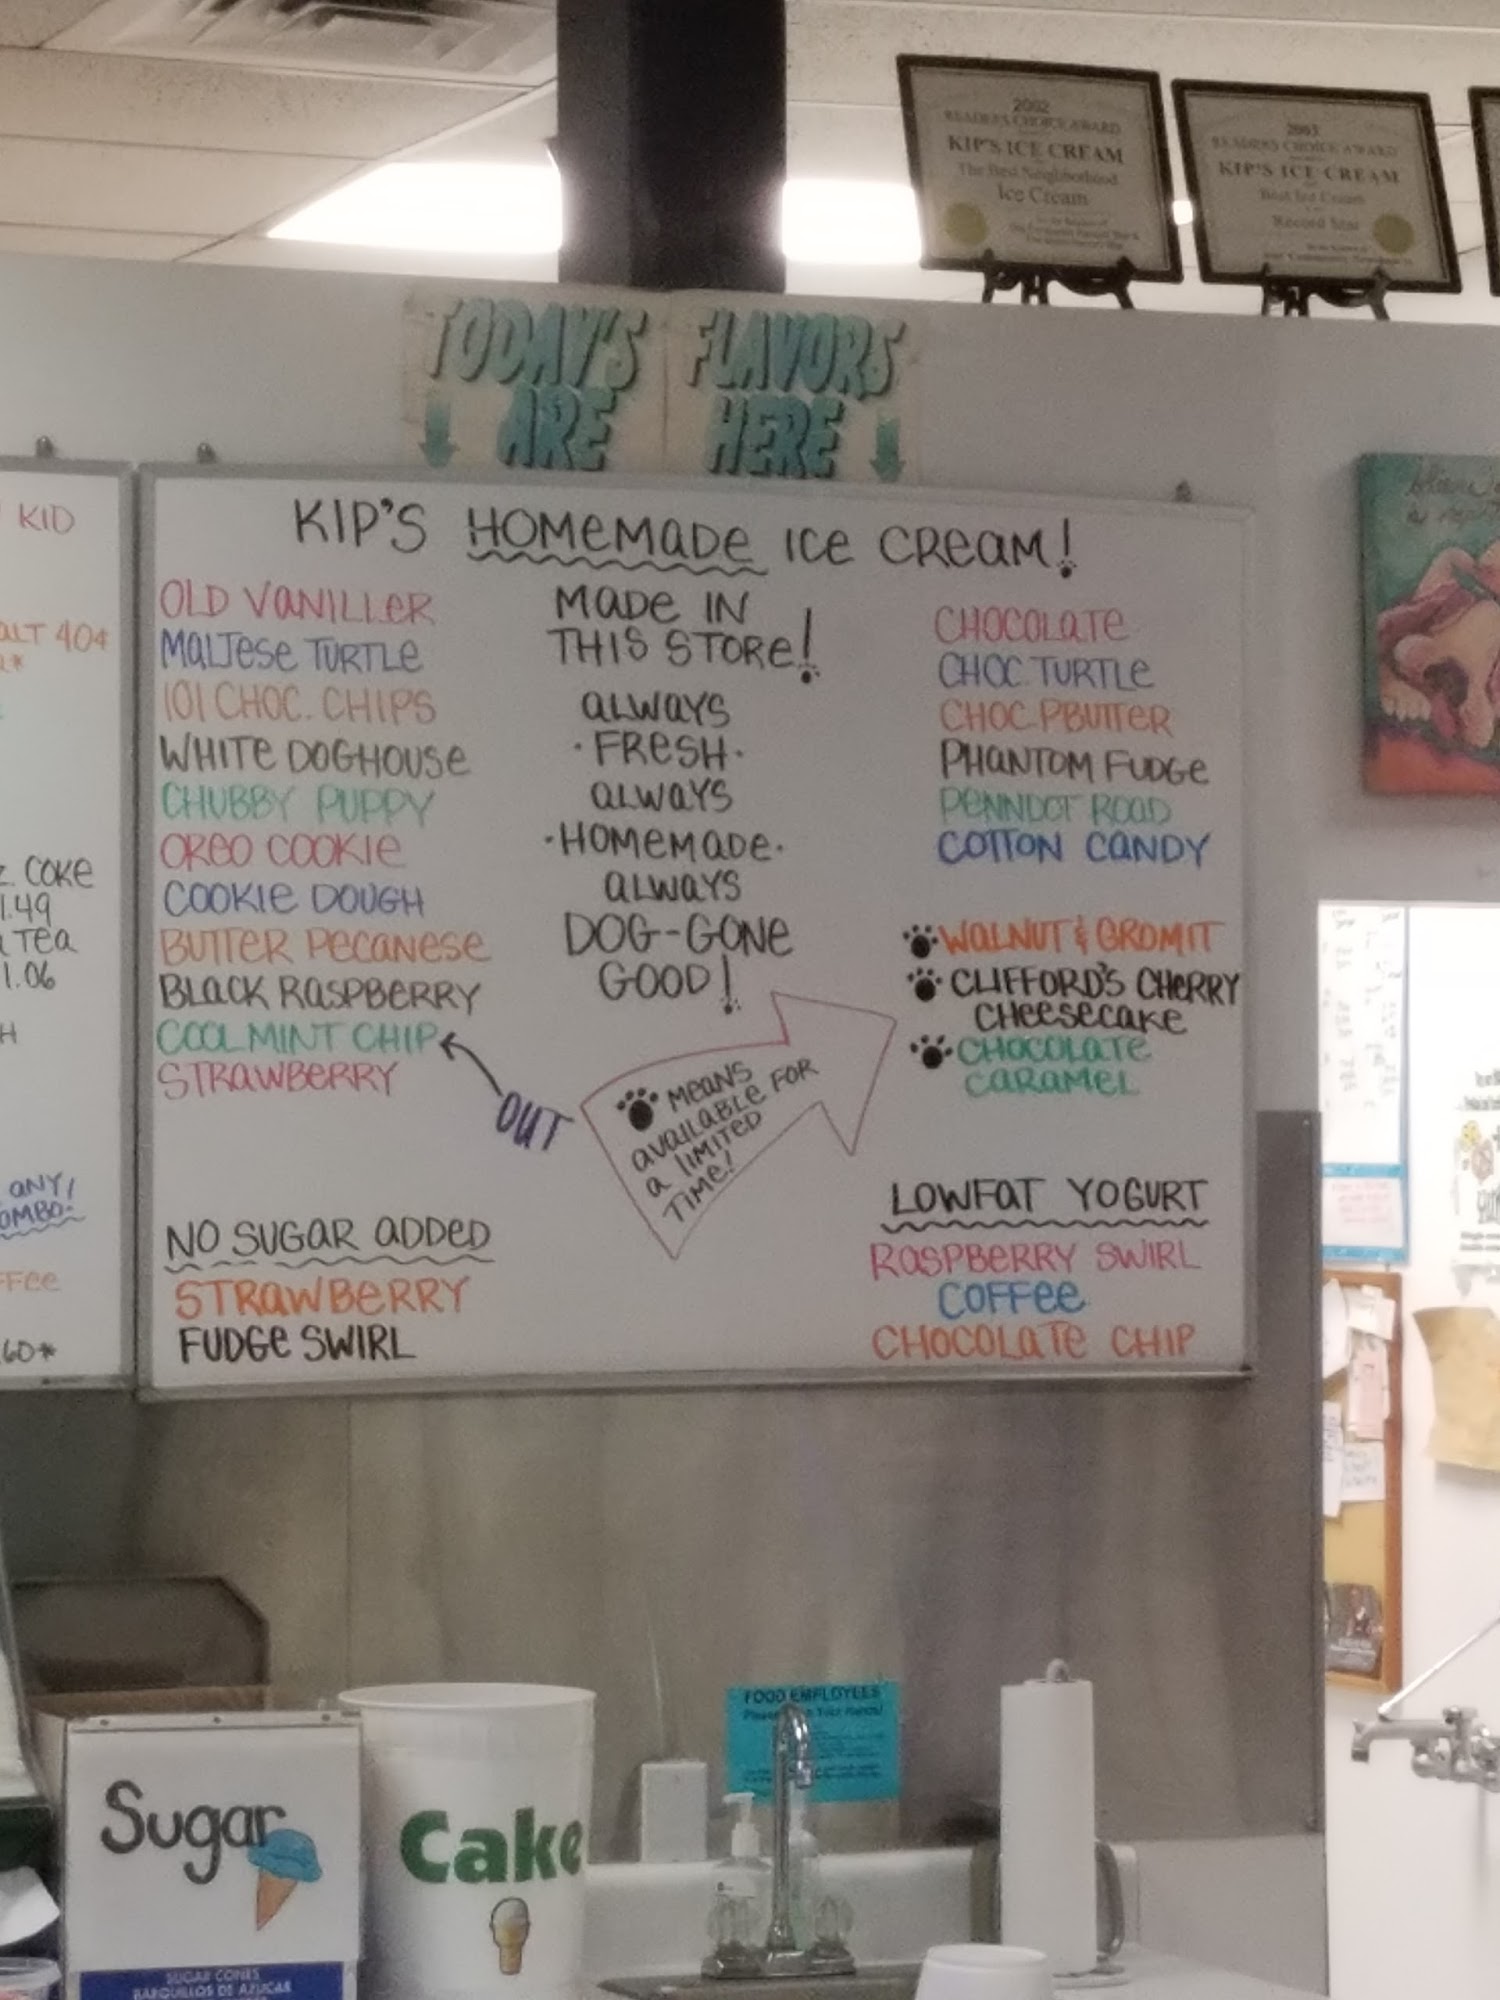 2002
READERS CHOICE AWARD
KIP'S ICE CREAM
The Best Neighborhood
Ice Cream
2003
READERS CHOICE AWARD
KIP'S ICE CREAM
Best Ice Cream
Record Star
TODAY'S FLAVORS
ARE HERE
KIP'S HOMEMADE ICE CREAM!
OLD VANILLER
MALTESE TURTLE
101 CHOC. CHIPS
WHITE DOGHOUSE
CHUBBY PUPPY
OREO COOKIE
COOKIE DOUGH
BUTTER PECANESE
BLACK RASPBERRY
COOL MINT CHIP
STRAWBERRY
OUT
NO SUGAR ADDED
STRAWBERRY
FUDGE SWIRL
MADE IN
THIS STORE!
ALWAYS
·FRESH·
ALWAYS
·HOMEMADE·
ALWAYS
DOG-GONE
GOOD!
MEANS
AVAILABLE FOR
A LIMITED
TIME!
CHOCOLATE
CHOC. TURTLE
CHOC. PBUTTER
PHANTOM FUDGE
PENNDOT ROAD
COTTON CANDY
WALNUT & GROMIT
CLIFFORD'S CHERRY
CHEESECAKE
CHOCOLATE
CARAMEL
LOWFAT YOGURT
RASPBERRY SWIRL
COFFEE
CHOCOLATE CHIP
KID
ALT 40¢
COKE
1.49
TEA
1.06
ANY!
OMBO!
FFEE
60*
FOOD EMPLOYEES
Sugar
SUGAR CONES
BARQUILLOS DE AZUCAR
Cake